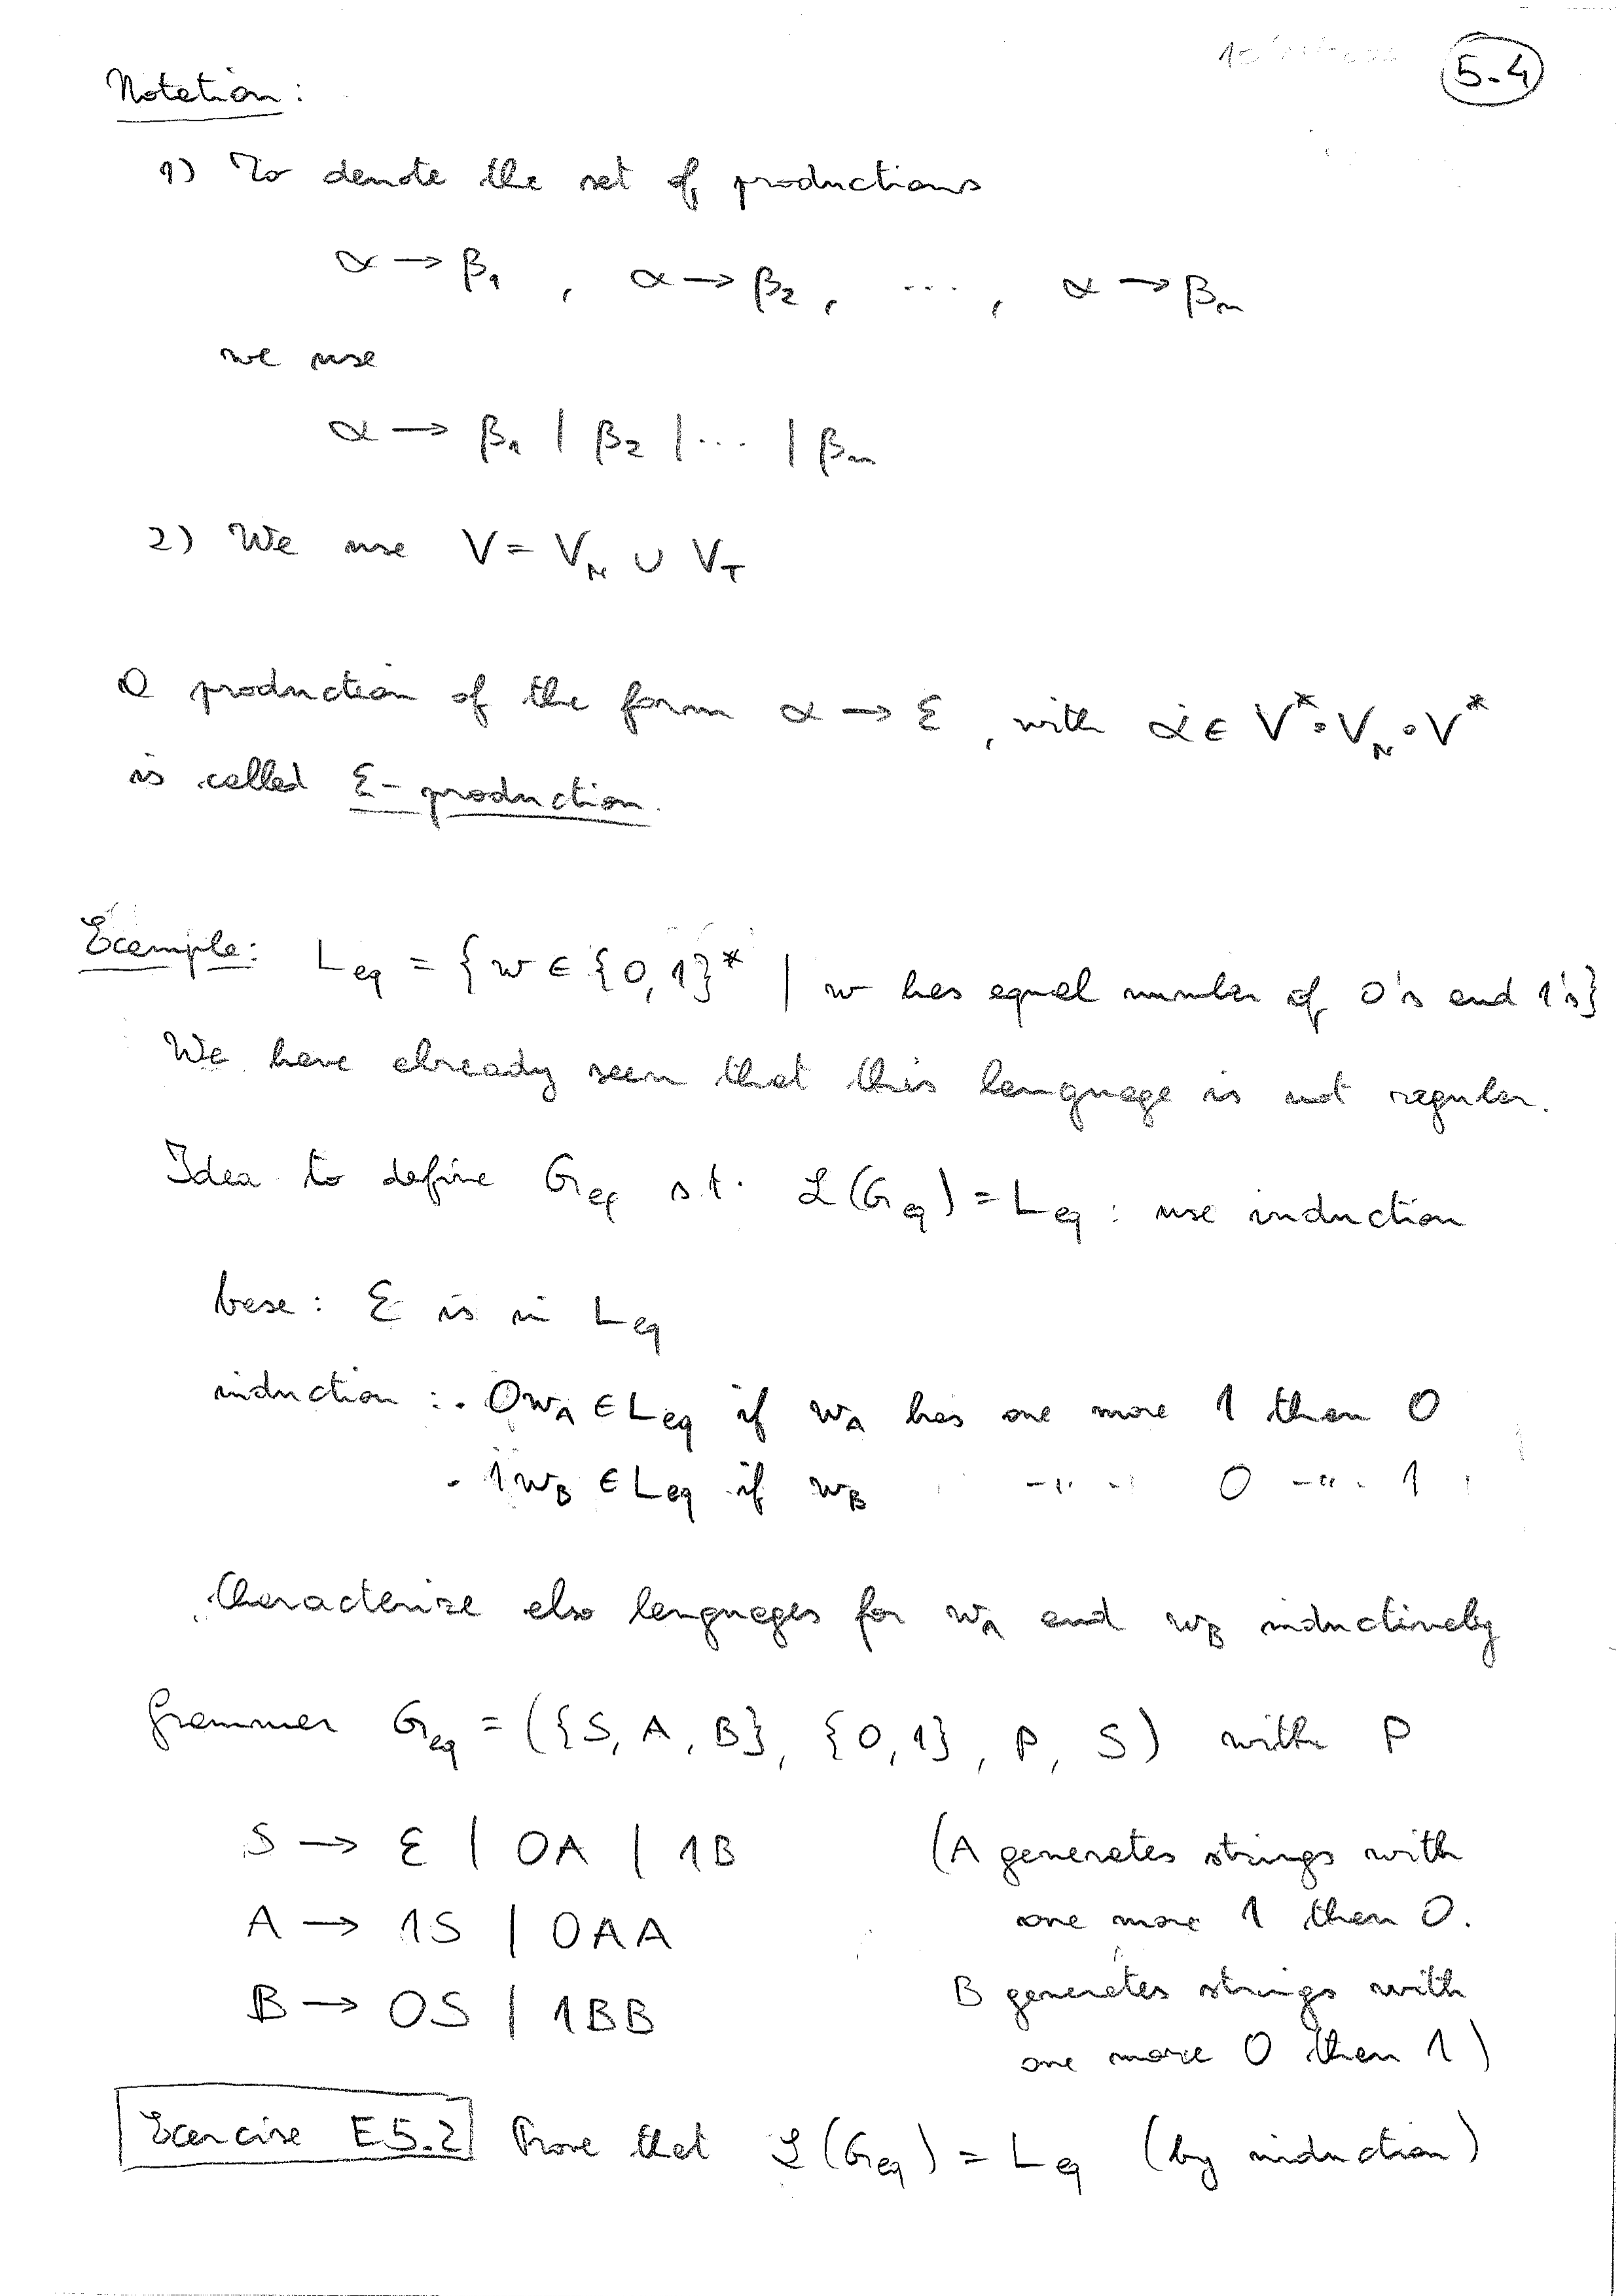 5-4
Notation:
1) To denote the set of productions
α → β₁ , α → β₂ , ... , α → βₙ
we use
α → β₁ | β₂ | ... | βₙ
2) We use V = V_N ∪ V_T
A production of the form α → ε , with α ∈ V*∘V_N∘V*
is called ε-production.
Example: L_eq = {w ∈ {0,1}* | w has equal number of 0's and 1's}
We have already seen that this language is not regular.
Idea to define G_eq s.t. L(G_eq) = L_eq : use induction
base: ε is in L_eq
induction : · 0w_A ∈ L_eq if w_A has one more 1 than 0
· 1w_B ∈ L_eq if w_B -"- 0 -"- 1
Characterize also languages for w_A and w_B inductively
Grammar G_eq = ({S, A, B}, {0,1}, P, S) with P
S → ε | 0A | 1B (A generates strings with
one more 1 than 0.
A → 1S | 0AA
B generates strings with
B → 0S | 1BB
one more 0 than 1)
Exercise E5.2 Prove that L(G_eq) = L_eq (by induction)